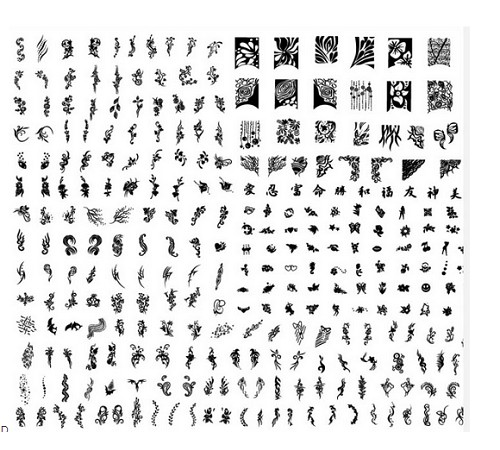 愛 忍 富 命 勝 和 福 友 神 美
D